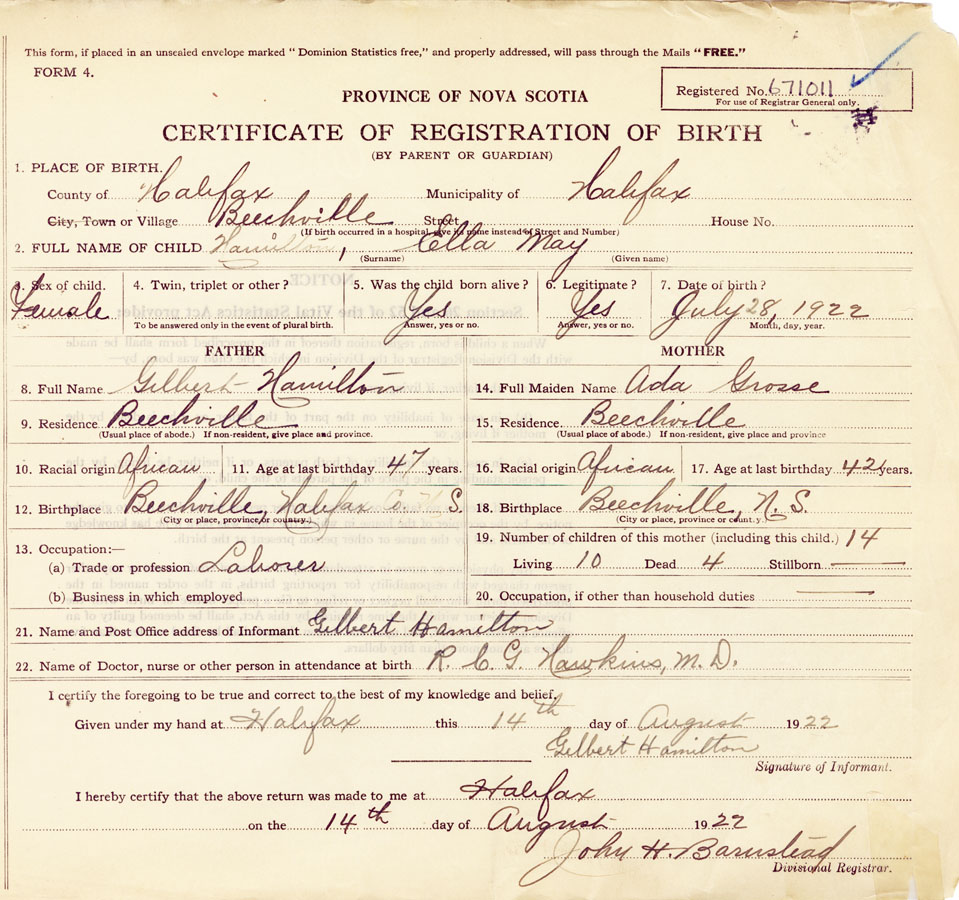 This form, if placed in an unsealed envelope marked "Dominion Statistics free," and properly addressed, will pass through the Mails "FREE."
FORM 4.
Registered No. 671011
For use of Registrar General only.
PROVINCE OF NOVA SCOTIA
CERTIFICATE OF REGISTRATION OF BIRTH
(BY PARENT OR GUARDIAN)
1. PLACE OF BIRTH.
County of Halifax Municipality of Halifax
City, Town or Village Beechville Street House No.
(If birth occurred in a hospital, give its name instead of Street and Number)
2. FULL NAME OF CHILD Hamilton, Ella May
(Surname) (Given name)
3. Sex of child. 4. Twin, triplet or other? 5. Was the child born alive? 6. Legitimate? 7. Date of birth?
Female Yes Yes July 28, 1922
To be answered only in the event of plural birth. Answer, yes or no. Answer, yes or no. Month, day, year.
FATHER MOTHER
8. Full Name Gilbert Hamilton 14. Full Maiden Name Ada Grosse
9. Residence Beechville 15. Residence. Beechville
(Usual place of abode.) If non-resident, give place and province. (Usual place of abode.) If non-resident, give place and province
10. Racial origin African 11. Age at last birthday 47 years. 16. Racial origin African 17. Age at last birthday 42 years.
12. Birthplace Beechville, Halifax Co. N. S. 18. Birthplace Beechville, N. S.
(City or place, province or country.) (City or place, province or country.)
13. Occupation:— 19. Number of children of this mother (including this child.) 14
(a) Trade or profession Laborer Living 10 Dead 4 Stillborn —
(b) Business in which employed 20. Occupation, if other than household duties —
21. Name and Post Office address of Informant Gilbert Hamilton
22. Name of Doctor, nurse or other person in attendance at birth R. C. G. Hawkins, M. D.
I certify the foregoing to be true and correct to the best of my knowledge and belief.
Given under my hand at Halifax this 14th day of August 1922
Gilbert Hamilton
Signature of Informant.
I hereby certify that the above return was made to me at Halifax
on the 14th day of August 1922
John H. Barnstead
Divisional Registrar.